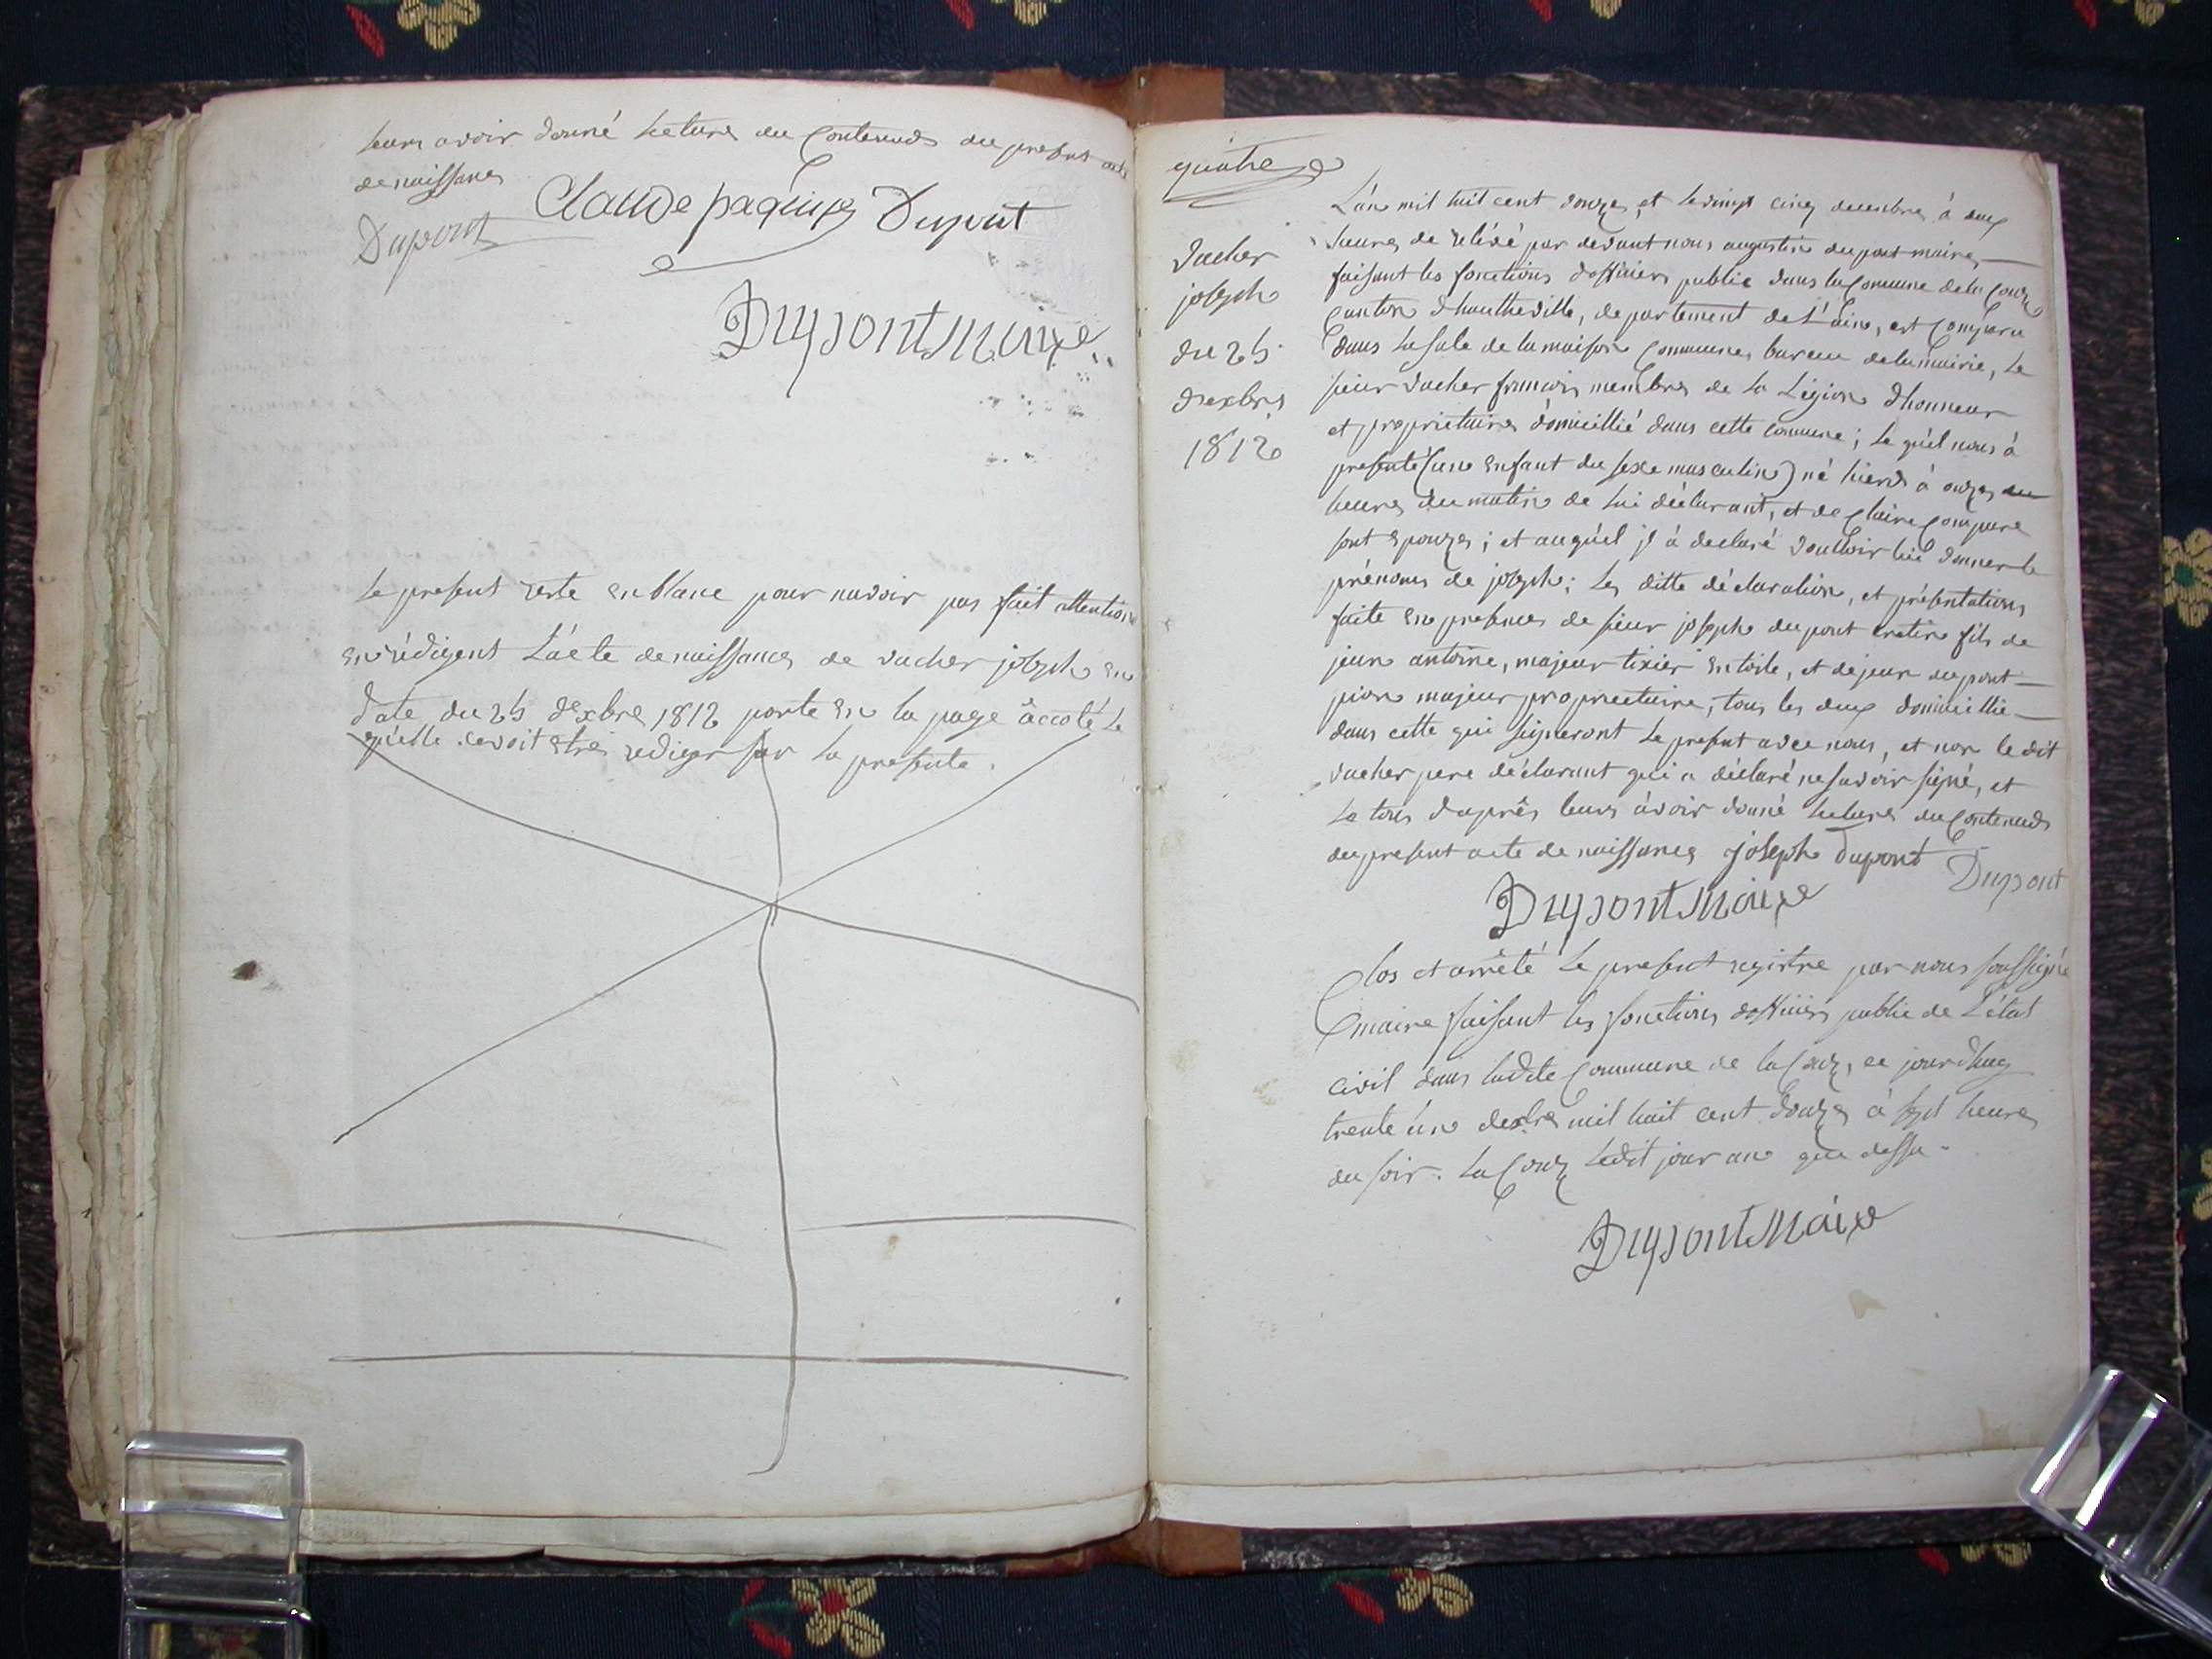 leurs avoir donné lecture du Contenuds du present acte
de naissance
Claude paquipy Dupont
Dupont
Dupont Maire
Le present reste en blanc pour navoir pas fait attention
en rédigent L'acte de naissance de vacher joseph en
date du 25 dexbre 1812 porté en la page àccolé le
quelle devoit etre rediger sur la presente.
quatre
Vacher
joseph
du 25
dexbre
1812
L'an mil huit cent douze, et le vingt cinq decembre à deux
heures de relévé par devant nous augustin dupont maire
faisant les fonctions d'officier public dans la Comune de la Couz
Canton d'hautheville, departement de L'ain, est Comparu
dans la sale de la maison Commune, bureau de la mairie, le
sieur vacher francois membre de la Légion d'honneur
et proprietaire domicillié dans cette comune; le quel nous à
presenté (un enfant du sexe masculin) né hierd à onze
heures du matin de lui déclarant, et de Claire Compare
sont epouze; et auquel jl à declaré voulloir lui donner le
prénoms de joseph; les ditte déclaration, et présentations
faite en presence de sieur joseph dupont cretin fils de
jean antoine, majeur tixier en toile, et de jean dupont
pion majeur proprietaire, tous les deux domicillié
dans cette qui signeront le present avec nous, et non le dit
vacher pere déclarant qui a déclaré ne savoir signé, et
le tous d'après leurs àvoir donné lecture du Contenuds
du present acte de naissance joseph dupont
Dupont
Dupont Maire
Clos et arrêté le present registre par nous soussigné
maire faisant les fonctions d'officier public de L'état
civil dans ladite Commune de la Couz, ce jourdhuy
trente ún dexbre mil huit cent douze à sept heures
du soir. La Couz ledit jour an que dessu
Dupont Maire